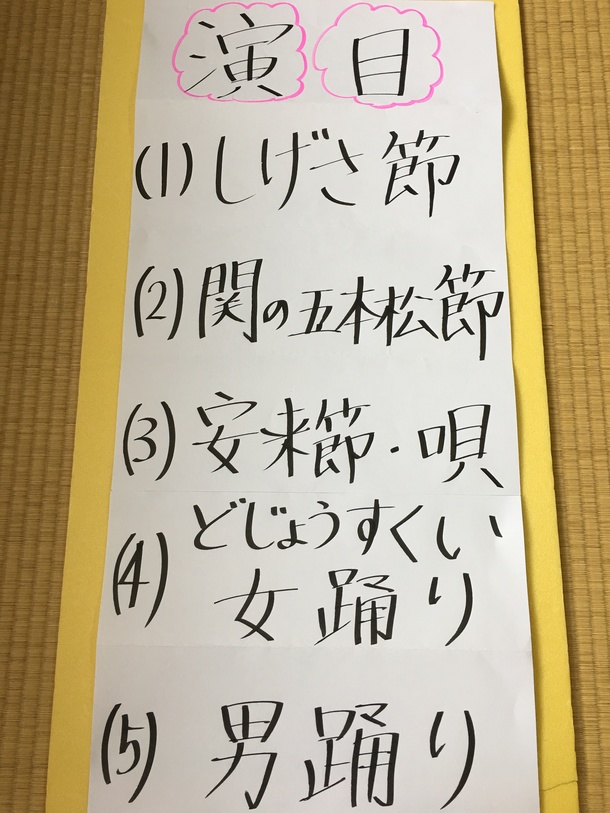 演目
(1)しげさ節
(2)関の五本松節
(3)安来節・唄
どじょうすくい
(4)女踊り
(5)男踊り